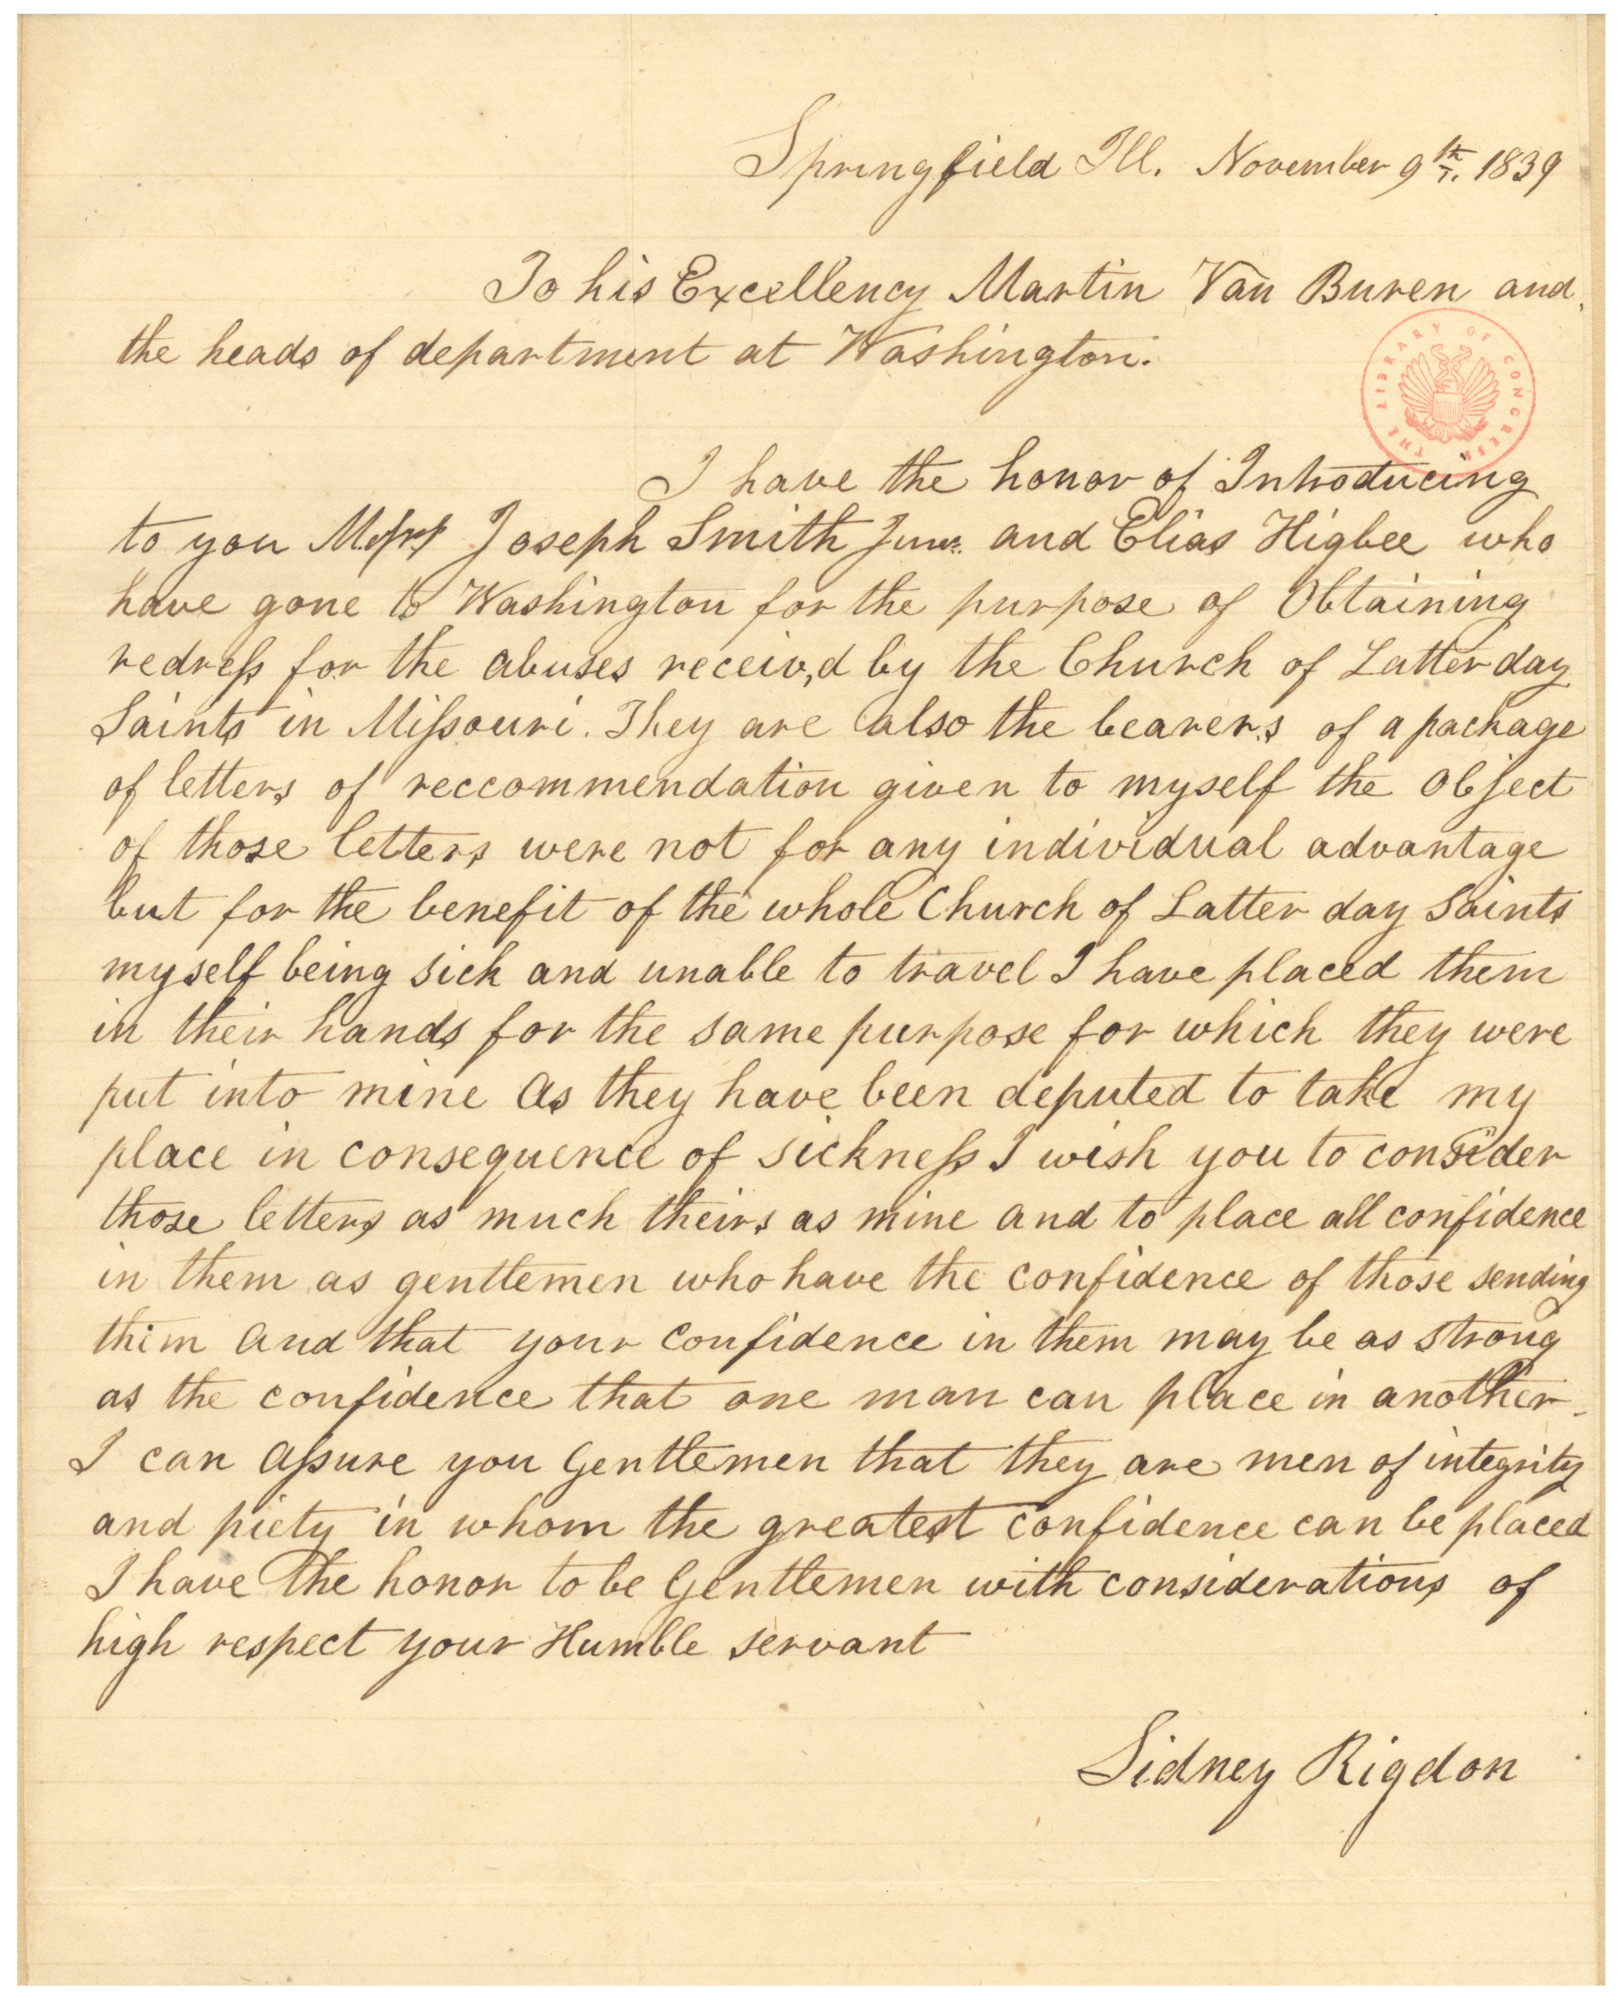 Springfield Ill. November 9th. 1839
To his Excellency Martin Van Buren and
the heads of department at Washington.
THE LIBRARY OF CONGRESS
I have the honor of Introducing
to you Messrs Joseph Smith Junr. and Elias Higbee who
have gone to Washington for the purpose of Obtaining
redress for the abuses receiv,d by the Church of Latter day
Saints in Missouri. They are also the bearers of a package
of letters of reccommendation given to myself the object
of those letters were not for any individual advantage
but for the benefit of the whole Church of Latter day Saints
myself being sick and unable to travel I have placed them
in their hands for the same purpose for which they were
put into mine As they have been deputed to take my
place in consequence of sickness I wish you to consider
those letters as much theirs as mine and to place all confidence
in them as gentlemen who have the confidence of those sending
them and that your confidence in them may be as strong
as the confidence that one man can place in another
I can assure you Gentlemen that they are men of integrity
and piety in whom the greatest confidence can be placed
I have the honor to be Gentlemen with considerations of
high respect your Humble servant
Sidney Rigdon